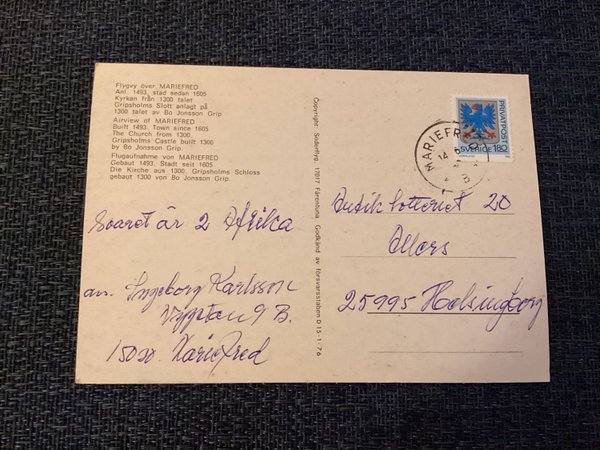 Flygvy över MARIEFRED
Anl. 1493, stad sedan 1605
Kyrkan från 1300 talet
Gripsholms Slott anlagt på
1300 talet av Bo Jonsson Grip
Airview of MARIEFRED
Built 1493. Town since 1605
The Church from 1300.
Gripsholms Castle built 1300
by Bo Jonsson Grip.
Flugaufnahme von MARIEFRED
Gebaut 1493. Stadt seit 1605
Die Kirche aus 1300. Gripsholms Schloss
gebaut 1300 von Bo Jonsson Grip.
Svaret är 2 Afrika
av. Ingeborg Karlsson
9 B.
15020 Mariefred
Copyright Söderflyg. 17017 Färentuna Godkänd av försvarsstaben D 15-1-76
PRIVATPOST
SVERIGE 180
MARIEFRED
14
Butik lotteriet 20
Allers
25995 Helsingborg